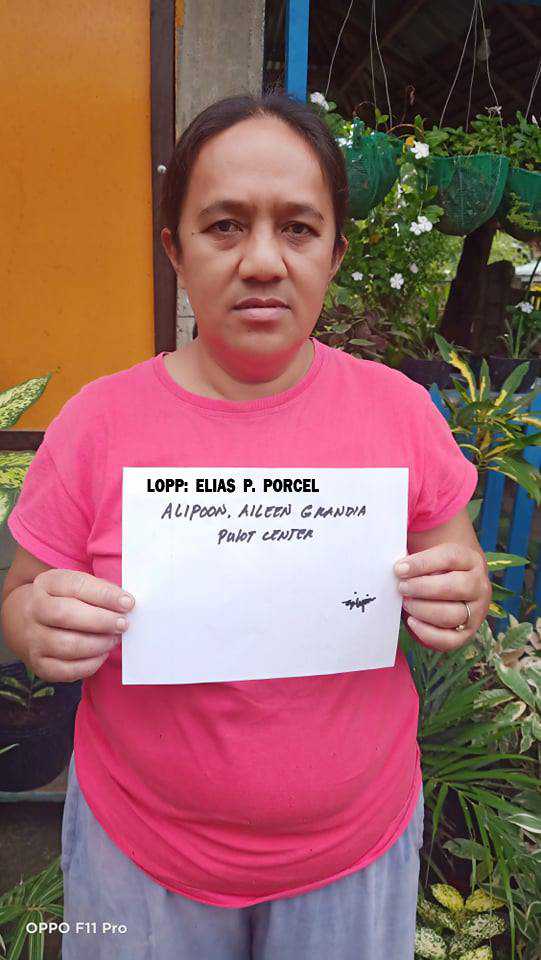 LOPP: ELIAS P. PORCEL
ALIPOON, AILEEN GRANDIA
PULOT CENTER
OPPO F11 Pro